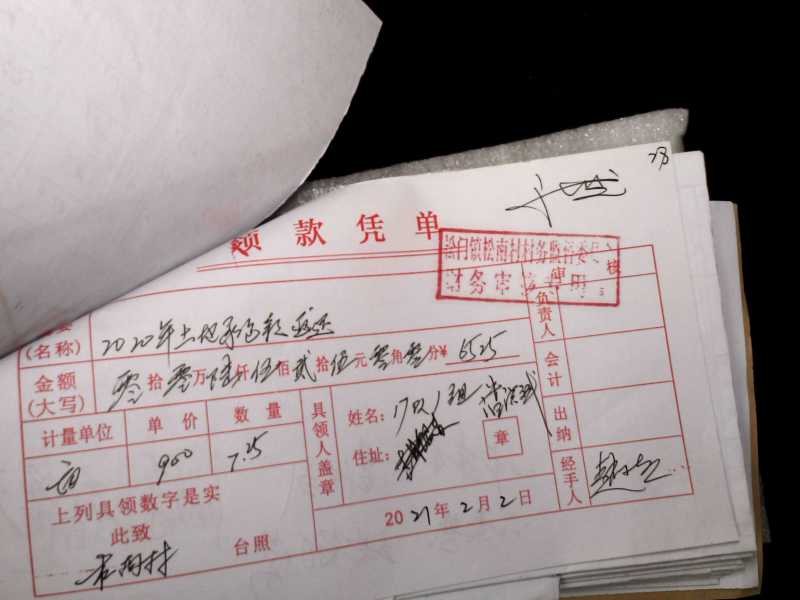 28
领款凭单
松门镇松南村村务监督委员
财务审核专用
(名称) 2020年土地承包款返还
审核
负责人
金额
(大写) 零拾零万陆仟伍佰贰拾伍元零角零分¥ 6525
会计
计量单位 单价 数量
亩 900 7.25
具领人盖章
姓名:
住址:
章
出纳
经手人
上列具领数字是实
此致
松南村 台照
2021年2月2日